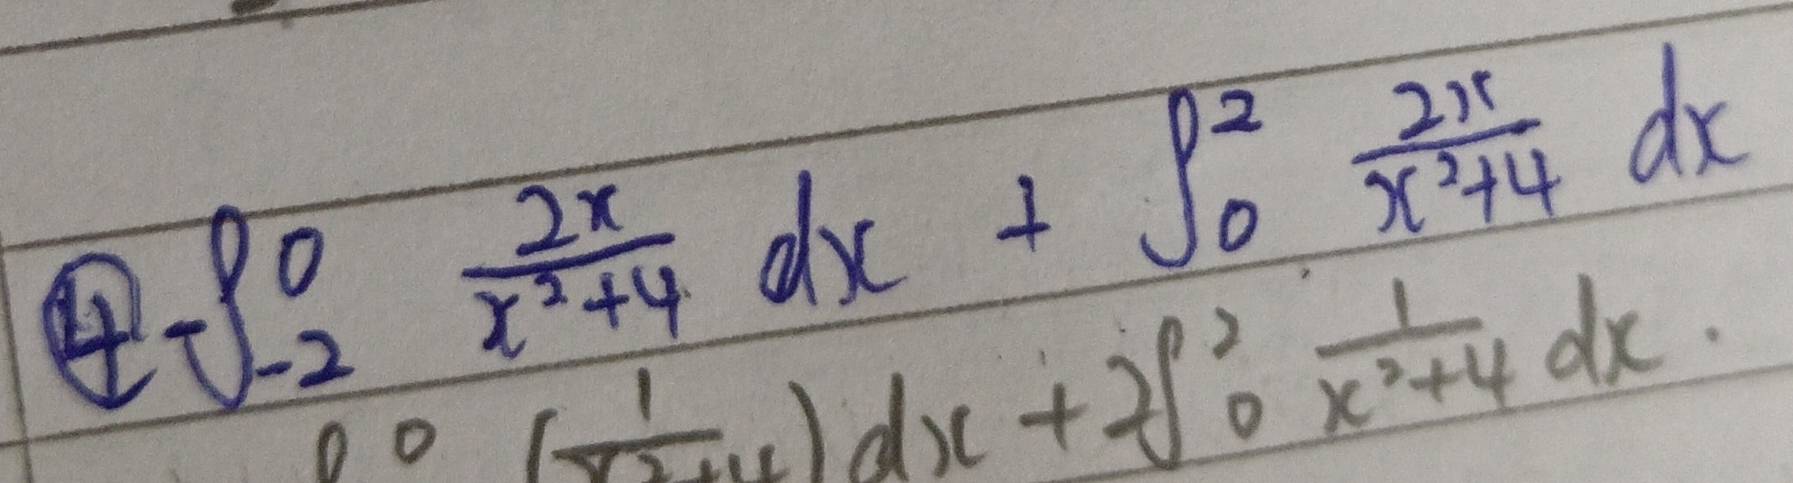 ④ -∫₋₂⁰ 2x/(x²+4) dx + ∫₀² 2x/(x²+4) dx
∫⁰ (1/(x²+4)) dx + 2∫₀² 1/(x²+4) dx.